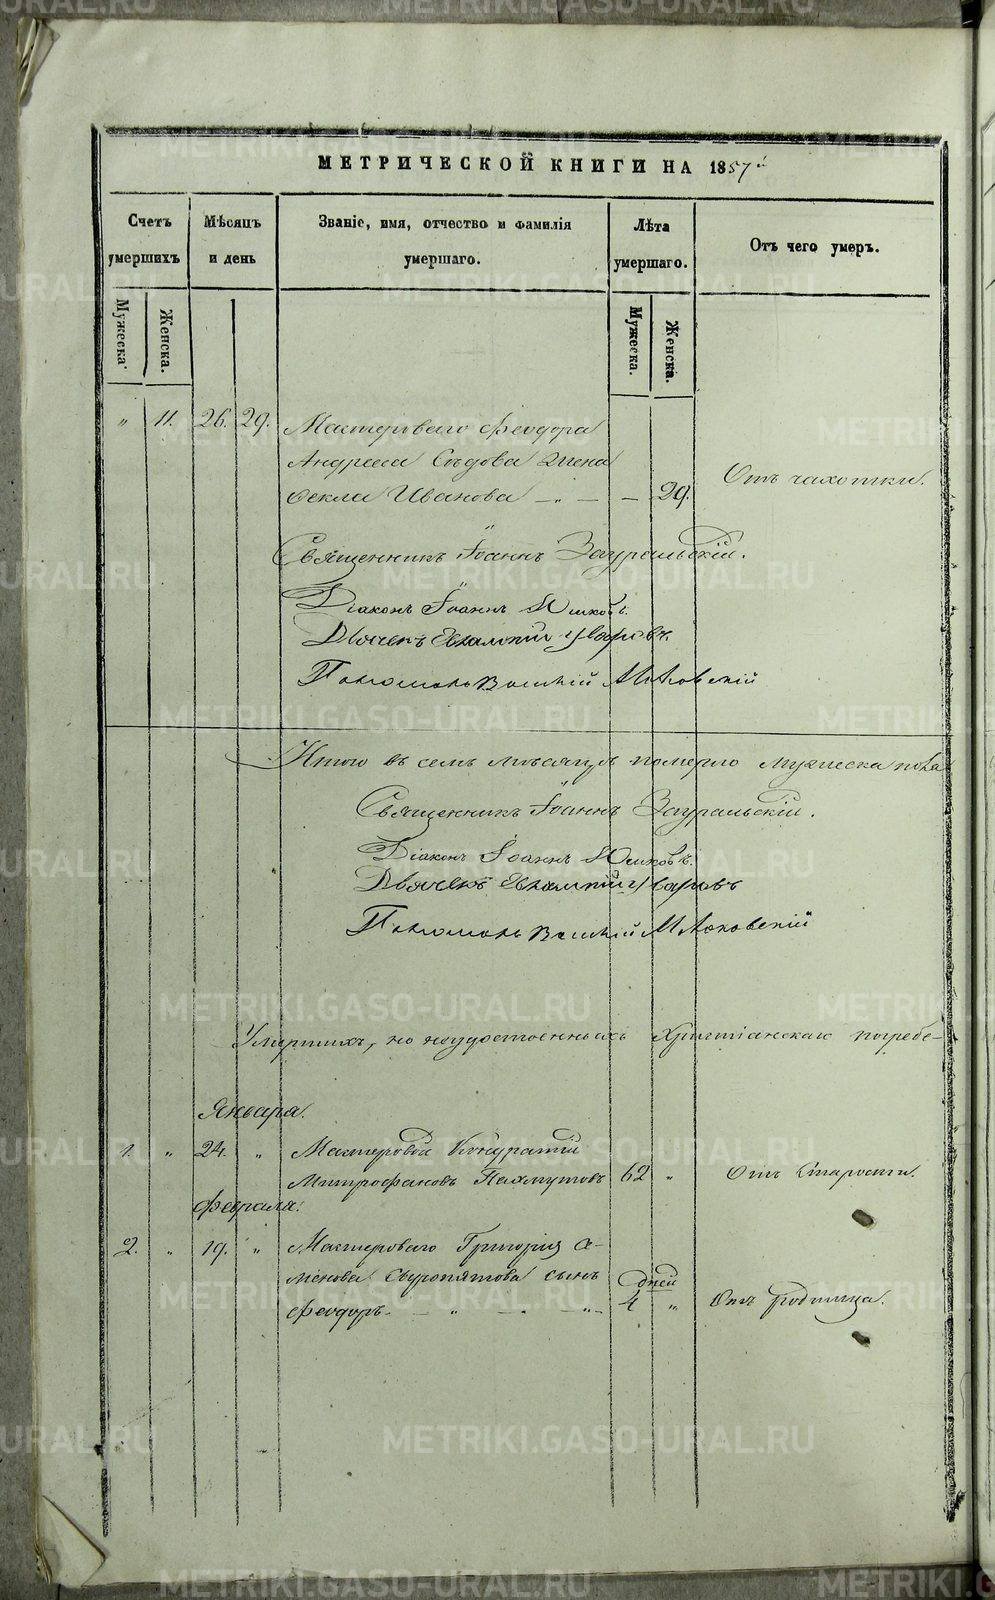 МЕТРИЧЕСКОЙ КНИГИ НА 1857й
Счетъ умершихъ
Мѣсяцъ и день
Званіе, имя, отчество и фамилія умершаго.
Лѣта умершаго.
Отъ чего умеръ.
Мужеска.
Женска.
Мужеска.
Женска.
" 11. 26. 29. Мастероваго Феодора
Андреева Сѣдова жена
Фекла Иванова — " — — 29. Отъ чахотки.
Священникъ Іоаннъ Зауральскій.
Діаконъ Іоаннъ
Дьячекъ Евлампій Уваровъ.
Пономарь Василій
Итого въ семъ мѣсяцѣ померло мужеска пола
Священникъ Іоаннъ Зауральскій.
Діаконъ Іоаннъ
Дьячекъ Евлампій Уваровъ
Пономарь Василій
Умершихъ, но неудостоенныхъ Христіанскаго погребе-
Января.
1. " 24. " Мастеровой Кондратій
Митрофановъ Пахмутовъ 62 " Отъ старости.
Февраля.
2. " 19. " Мастероваго Григорія С-
менова Сыропятова сынъ дней
Феодоръ — " — " — 4 " Отъ родимца.
METRIKI.GASO-URAL.RU